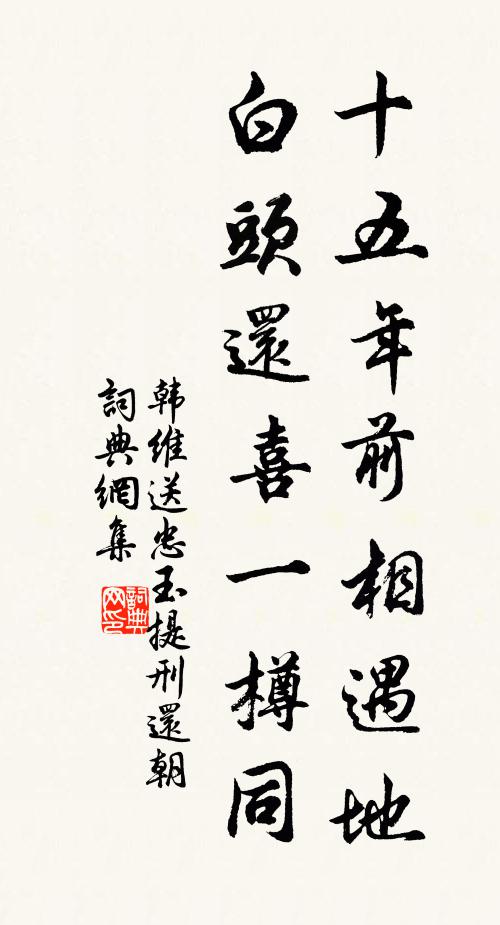 十五年前相遇地
白頭還喜一樽同
韩維送忠玉提刑還朝
詞典網集
詞典网印